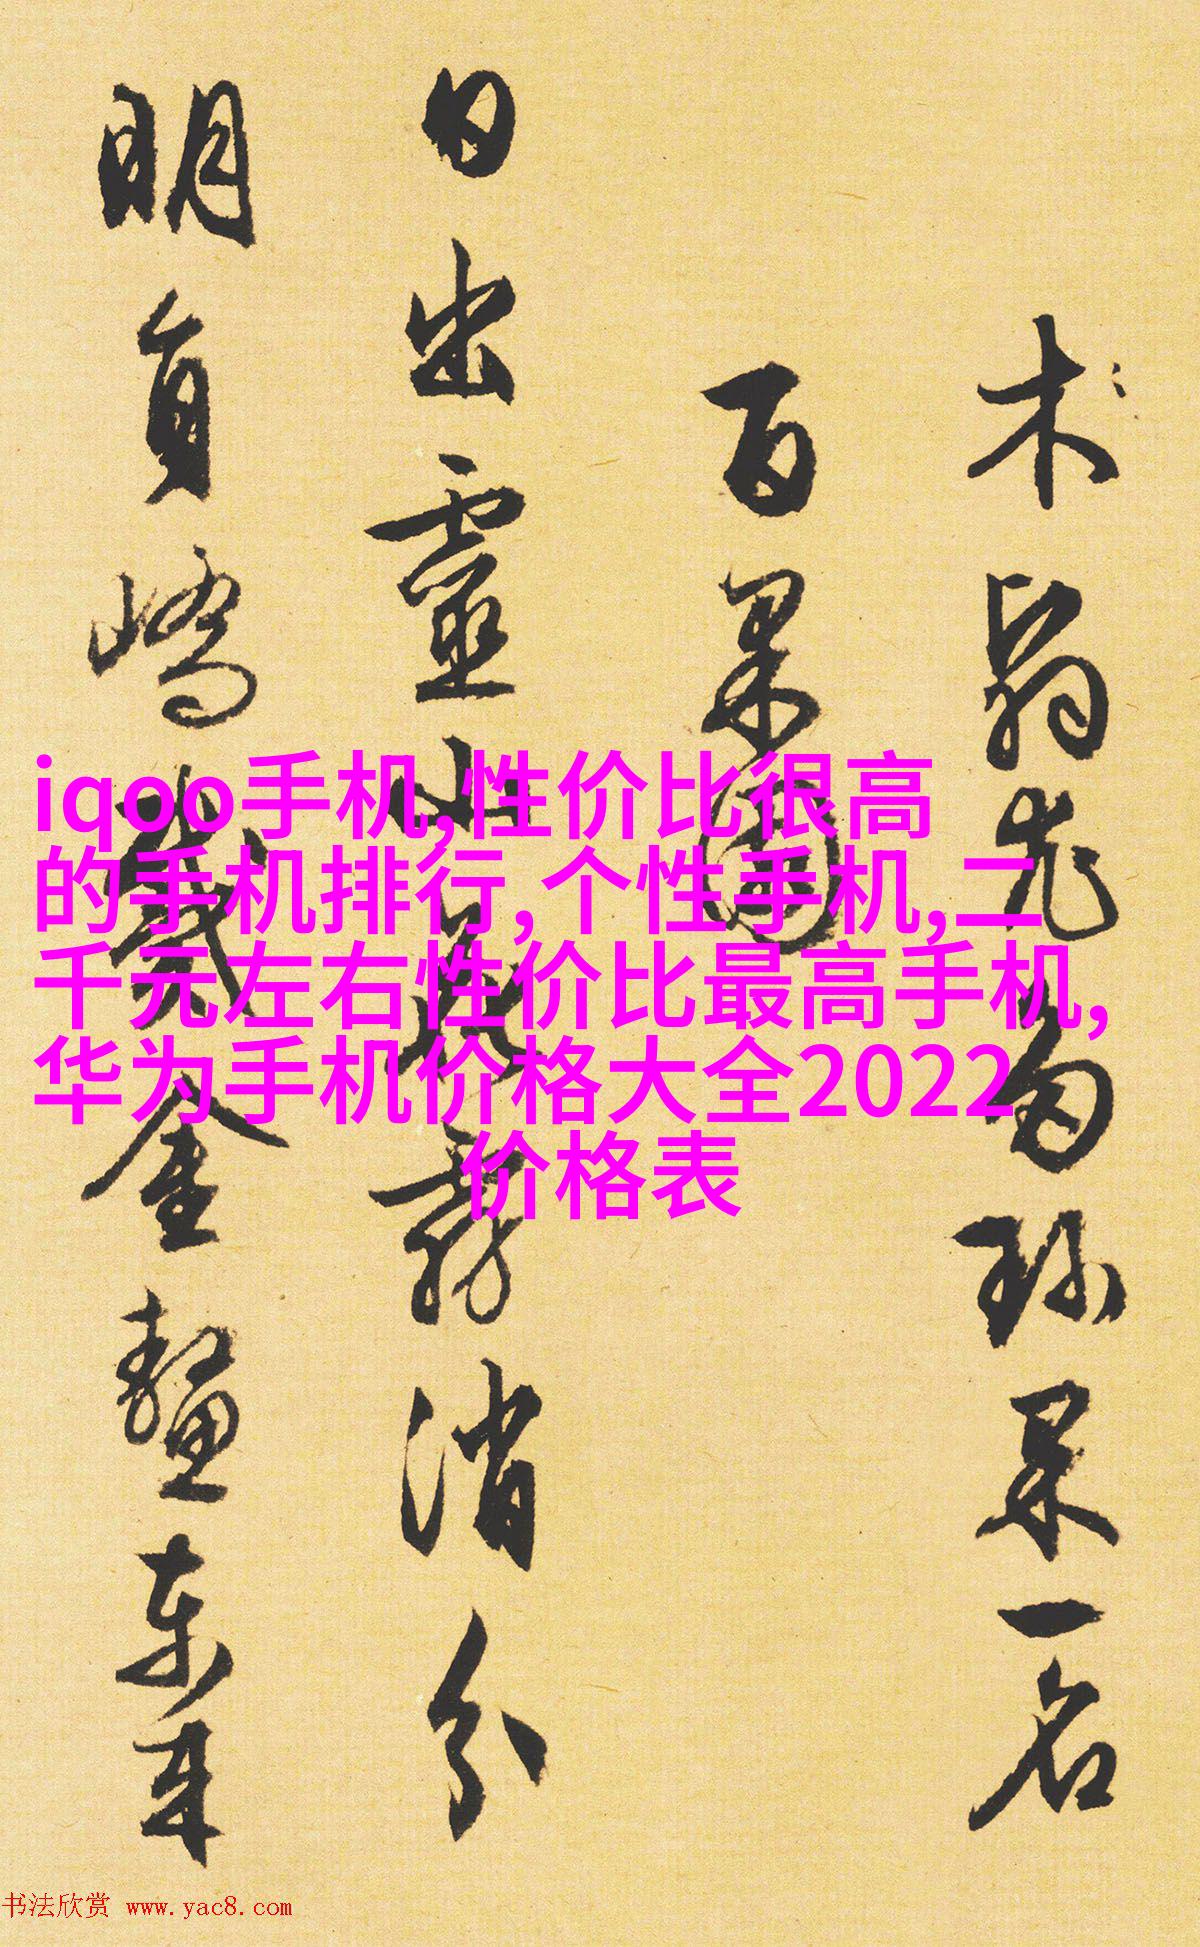 术翁尤为珍果一名
百果园
日出灵山花雾消分
明员峤戴金鳌东来
iqoo手机,性价比很高
的手机排行,个性手机,二
千元左右性价比最高手机,
华为手机价格大全2022
价格表
书法欣赏 www.yac8.com